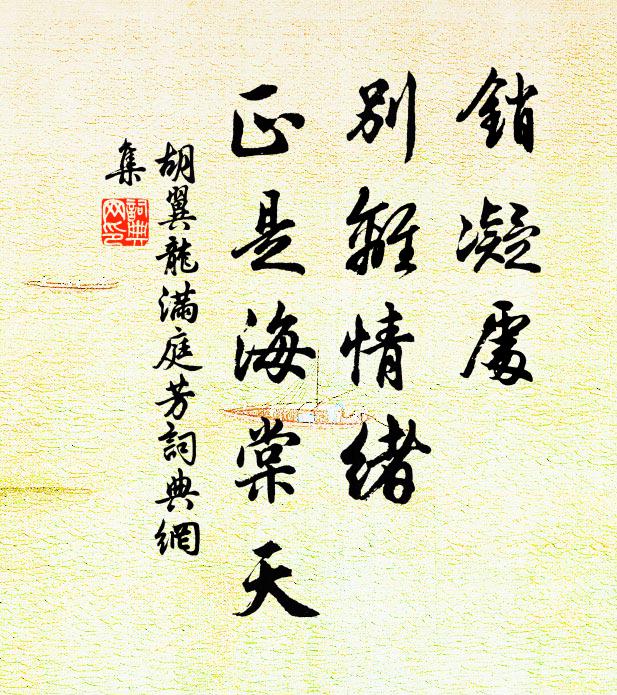 銷凝處
別離情緒
正是海棠天
胡翼龍滿庭芳詞典網
集
詞典
网印